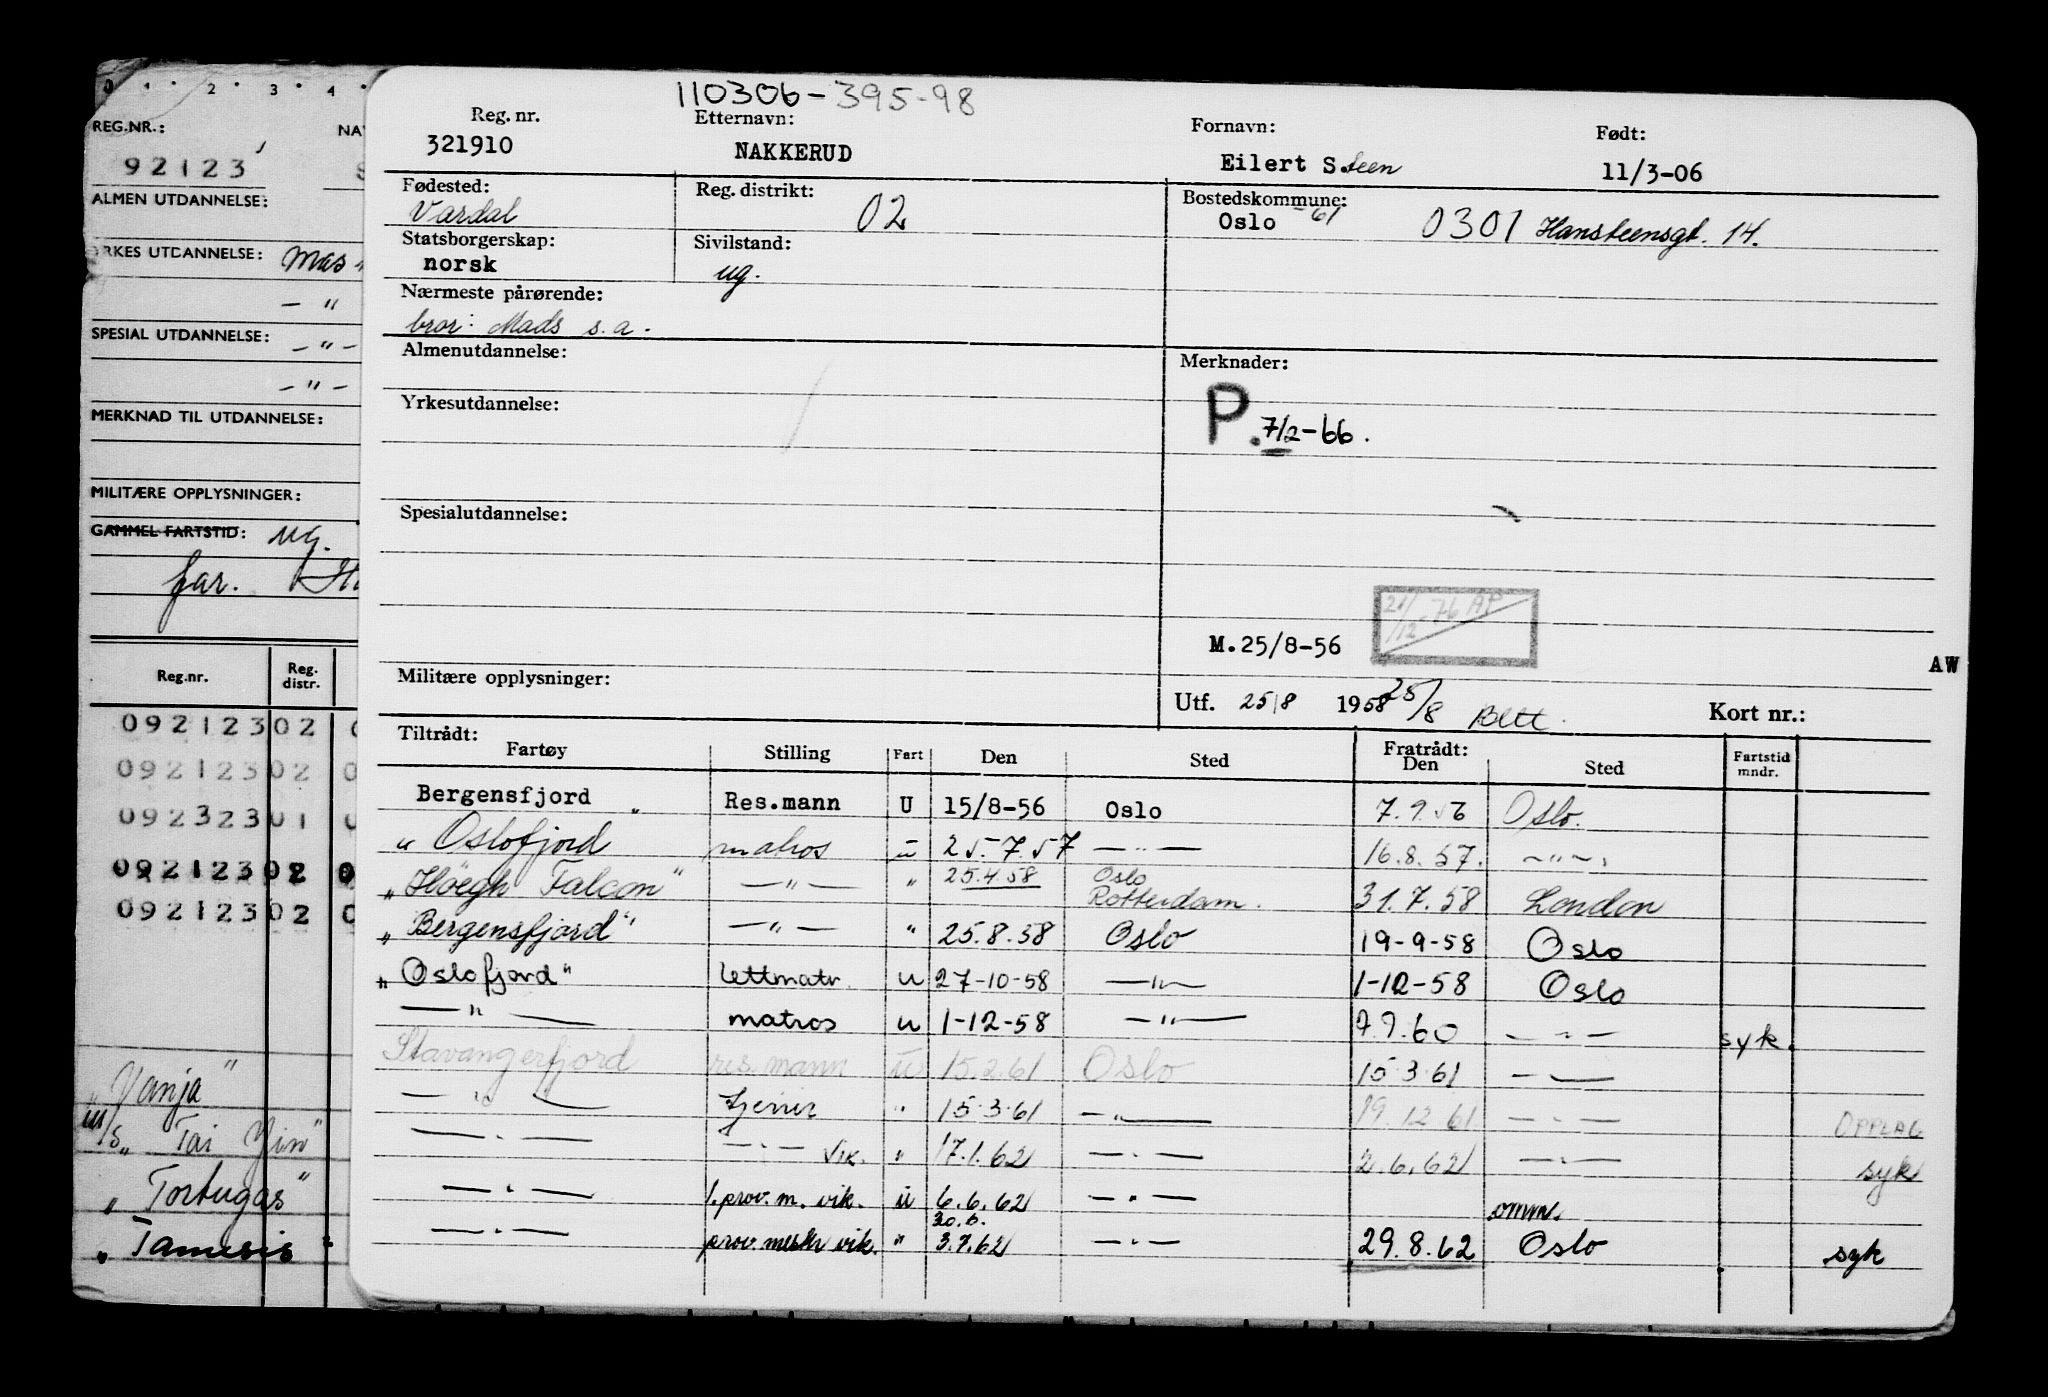 110306-395-98
Reg. nr. Etternavn: Fornavn: Født:
321910 NAKKERUD Eilert S.teen 11/3-06
Fødested: Reg. distrikt: Bostedskommune:
Vardal 02 Oslo -61 0301 Hansteensgt. 14.
Statsborgerskap: Sivilstand:
norsk ug.
Nærmeste pårørende:
bror: Mads s.a.
Almenutdannelse: Merknader:
Yrkesutdannelse: P. 7/2-66.
Spesialutdannelse:
21/12-76 AP
M.25/8-56
AW
Militære opplysninger: Utf. 25/8 1958 25/8 Kort nr.:
Tiltrådt: Fratrådt:
Fartøy Stilling Fart Den Sted Den Sted Fartstid mndr.
Bergensfjord " Res.mann U 15/8-56 Oslo 7.9.56 Oslo.
" Oslofjord matros u 25.7.57 —"— 16.8.57. —"—.
"Höegh Falcon" —"— " 25.4.58 Oslo Rotterdam. 31.7.58 London
"Bergensfjord" —"— " 25.8.58 Oslo 19-9-58 Oslo
"Oslofjord" lettmatr. u 27-10-58 —"— 1-12-58 Oslo
—"— matros u 1-12-58 —"— 7.9.60 —"— syk.
Stavangerfjord res.mann u 15.2.61 Oslo 15.3.61 —"—
—"— " 15.3.61 —"— 19.12.61 —"— OPPLAG
—"— —"— vik. " 17.1.62 —"— 2.6.62 —"— syk
—"— 1. prov.m. vik. u 6.6.62 —"— omm.
30.6.
—"— prov.mestr vik. " 3.7.62 —"— 29.8.62 Oslo syk
0 1 2 3 4
REG.NR.: NA
92123
ALMEN UTDANNELSE:
RKES UTDANNELSE: mas
—"
SPESIAL UTDANNELSE: —"—
—"—
MERKNAD TIL UTDANNELSE:
MILITÆRE OPPLYSNINGER:
GAMMEL FARTSTID: ug.
far.
Reg.nr. Reg. distr.
092123 02 0
092123 02 0
092323 01
092123 02 0
092123 02 0
"Vanja"
m/s "Tai Yin"
"Tortugas"
"Tamesis"